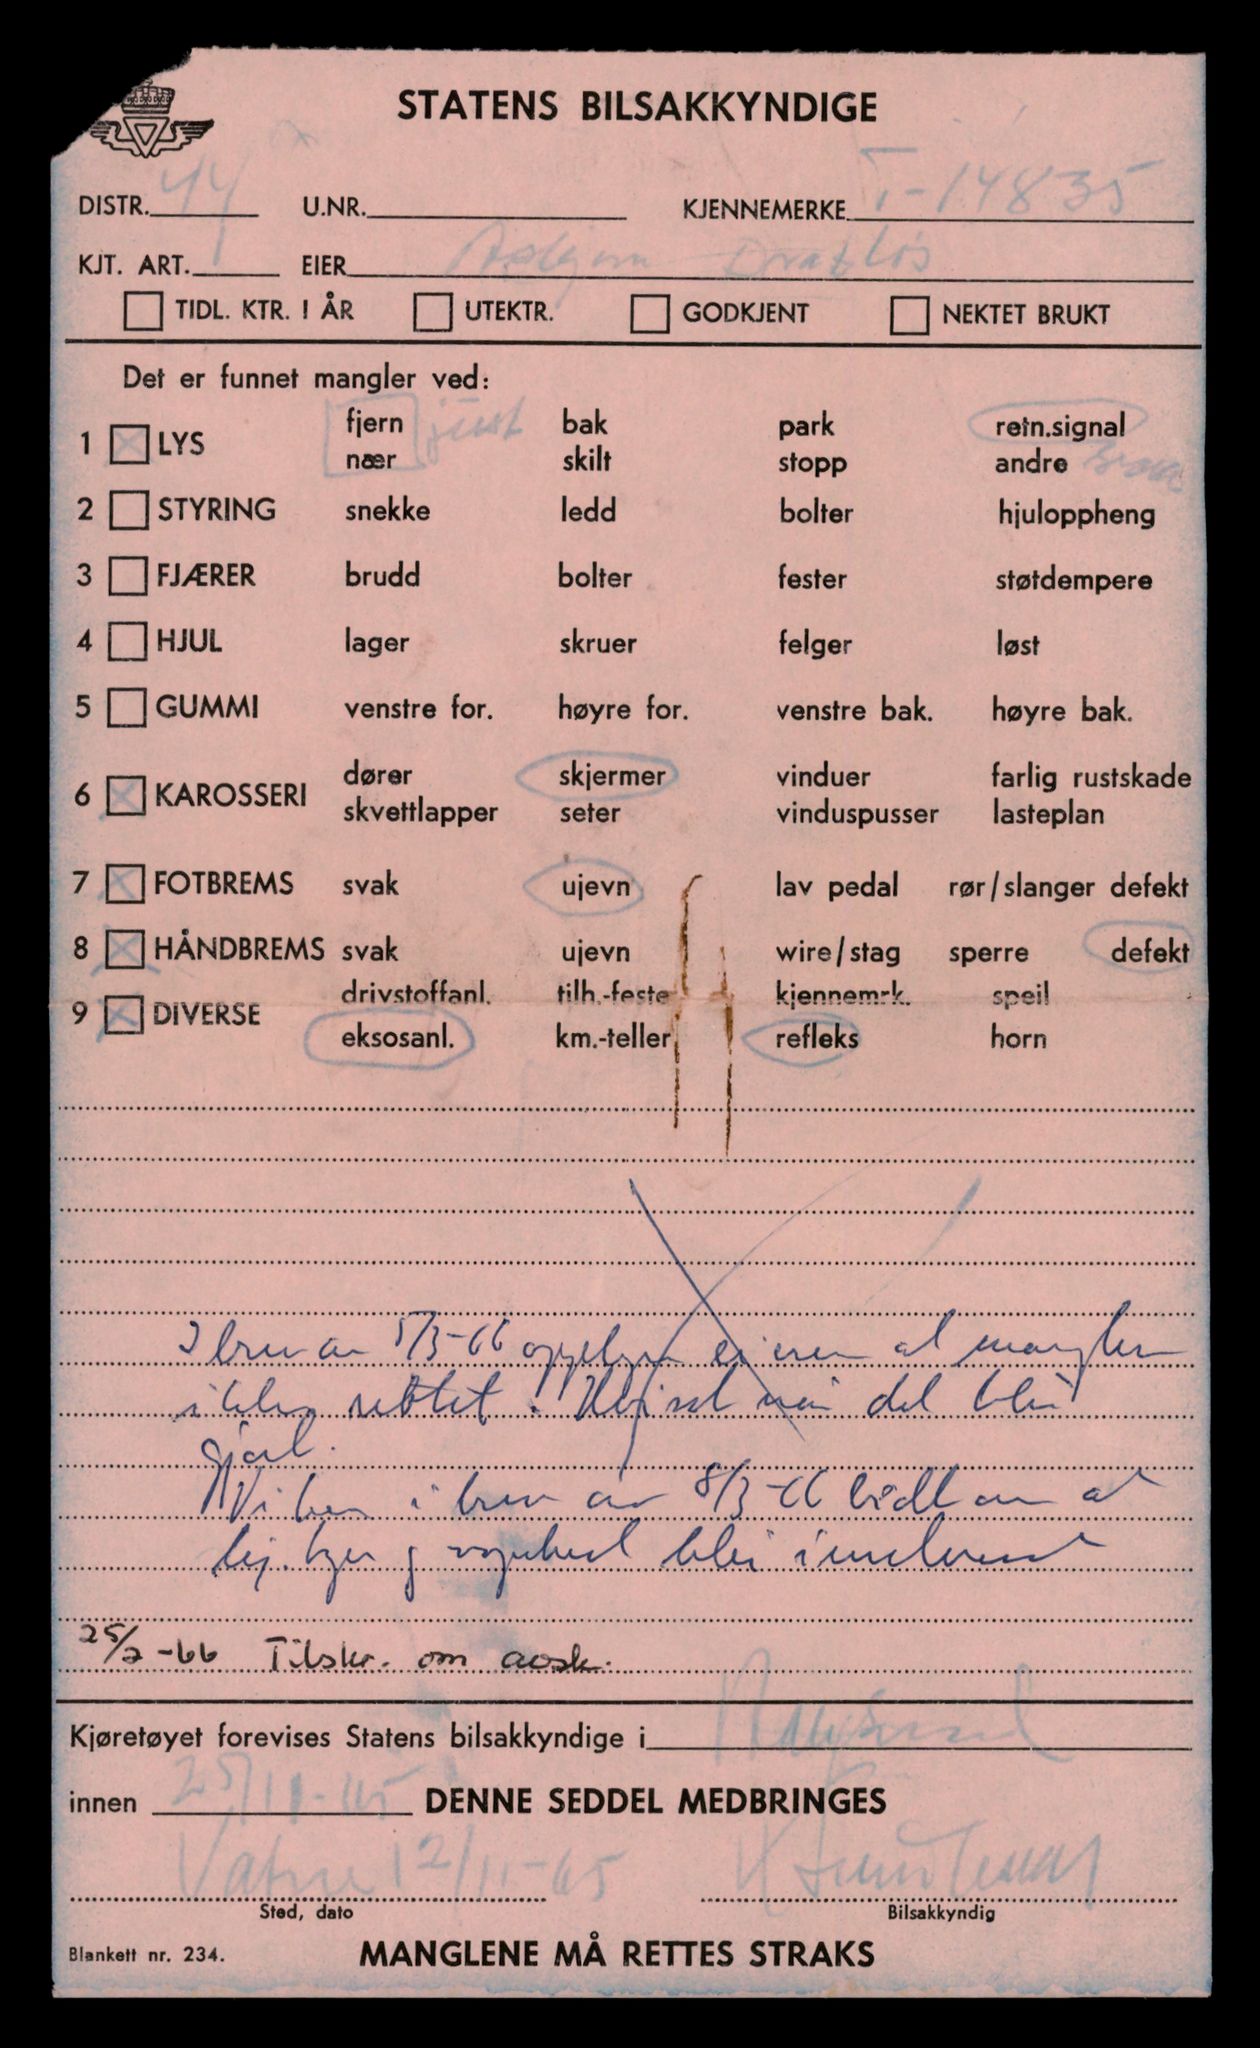 STATENS BILSAKKYNDIGE
DISTR. 44 U.NR. KJENNEMERKE T-14835
KJT. ART. EIER Asbjørn Drabløs
TIDL. KTR. I ÅR UTEKTR. GODKJENT NEKTET BRUKT
Det er funnet mangler ved:
fjern just bak park retn.signal
1 LYS
nær skilt stopp andre
2 STYRING snekke ledd bolter hjuloppheng
3 FJÆRER brudd bolter fester støtdempere
4 HJUL lager skruer felger løst
5 GUMMI venstre for. høyre for. venstre bak. høyre bak.
dører skjermer vinduer farlig rustskade
6 KAROSSERI
skvettlapper seter vinduspusser lasteplan
7 FOTBREMS svak ujevn lav pedal rør/slanger defekt
8 HÅNDBREMS svak ujevn wire/stag sperre defekt
drivstoffanl. tilh.-feste kjennemrk. speil
9 DIVERSE
eksosanl. km.-teller refleks horn
I brev av 5/3-66 oppgir eieren at mangler
ikke rettet. når det blir
gjort.
Vi har i brev av 8/3-66 bedt om at
og vognkort blir innlevert
25/2-66 Tilskr. om avsk.
Kjøretøyet forevises Statens bilsakkyndige i
innen 25/11-65 DENNE SEDDEL MEDBRINGES
Vatne 12/11-65
Sted, dato Bilsakkyndig
Blankett nr. 234. MANGLENE MÅ RETTES STRAKS